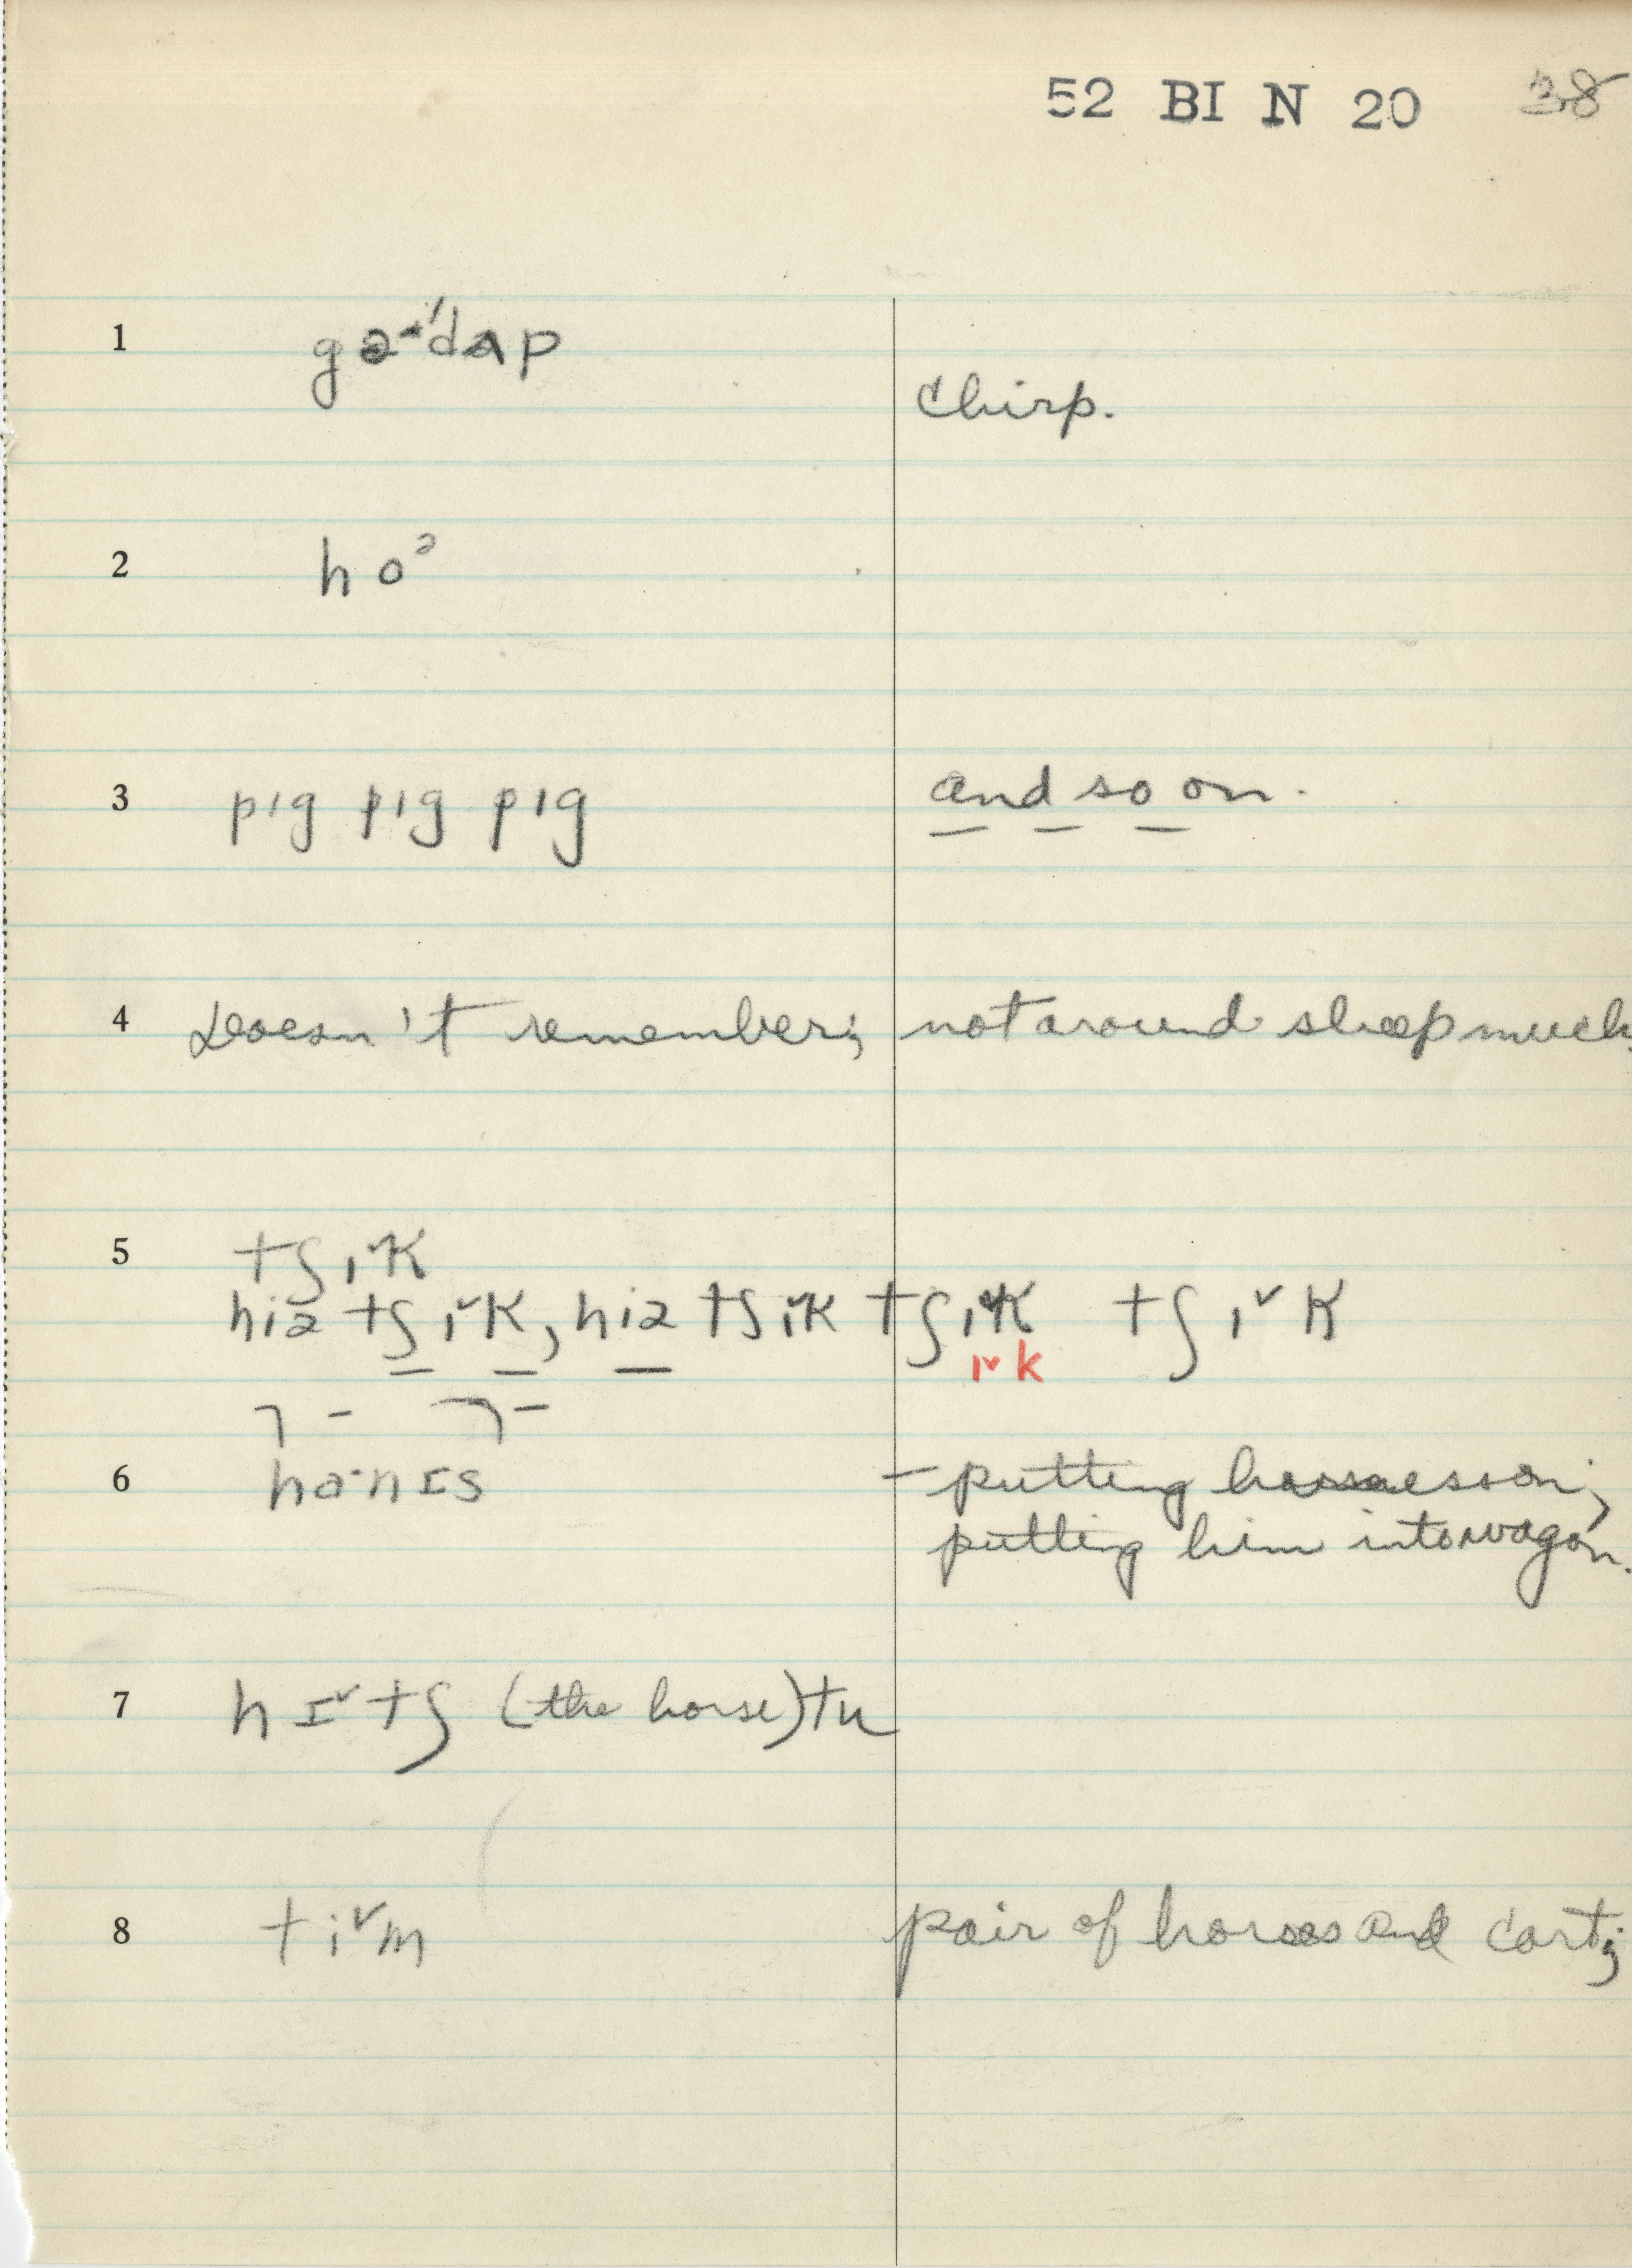 52 BI N 20 38
1 gə'dʌp
chirp.
2 hoᵊ
3 pɪg pɪg pɪg and so on.
4 Doesn't remember; not around sheep much.
5 tʃɪ˅k
hiə tʃɪ˅k, hiə tʃɪ˅k tʃɪ˅k tʃɪ˅k
ɪ˅k
6 ha·nɪs – putting harness on;
putting him into wagon.
7 hɪ˅tʃ (the horse) tu
8 ti˅m pair of horses and cart;